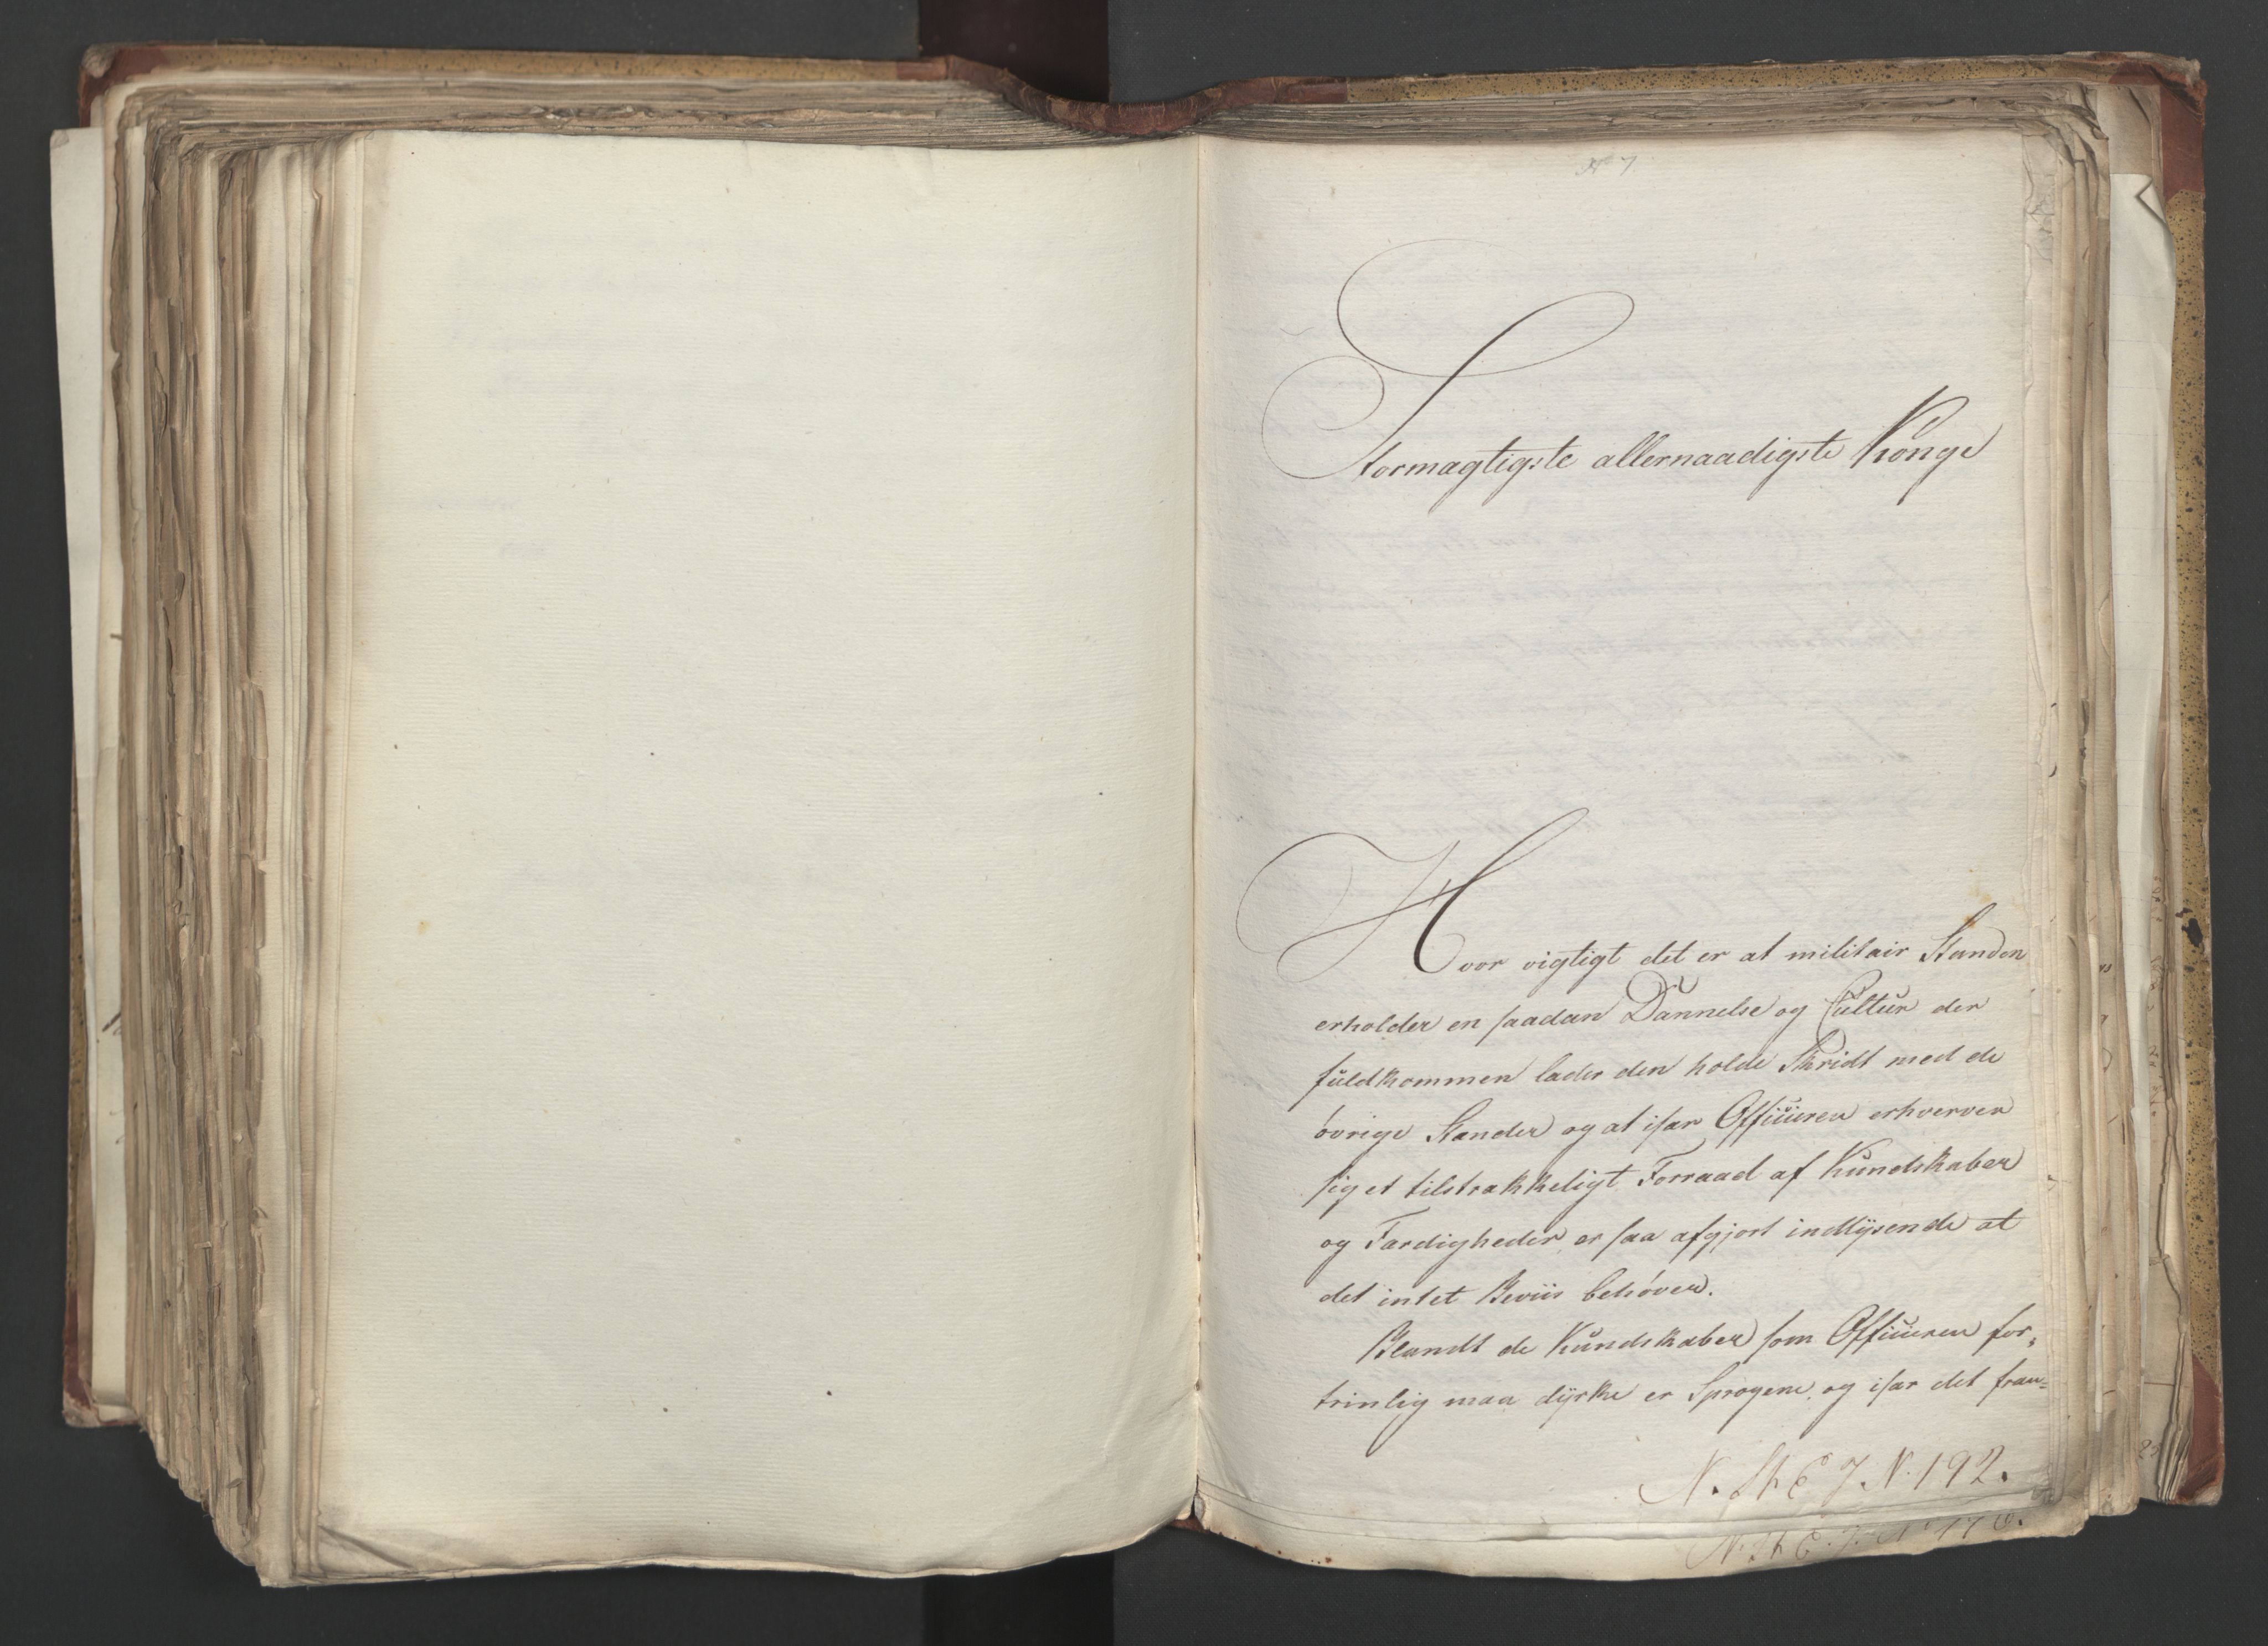 N 7
Stormagtigste allernaadigste Konge
Hvor vigtigt det er at militair Standen
erholder en saadan Dannelse og Cultur der
fuldkommen lader den holde Skridt med de
övrige Stænder og at især Officieren erhverver
sig et tilstrækkeligt Forraad af Kundskaber
og Færdigheder, er saa afgjort indlysende at
det intet Beviis behöver.
Blandt de Kundskaber som Officieren for-
trinlig maa dyrke er Sprogene, og især det fran-
N. St E J. N. 192.
N. St E. J. N